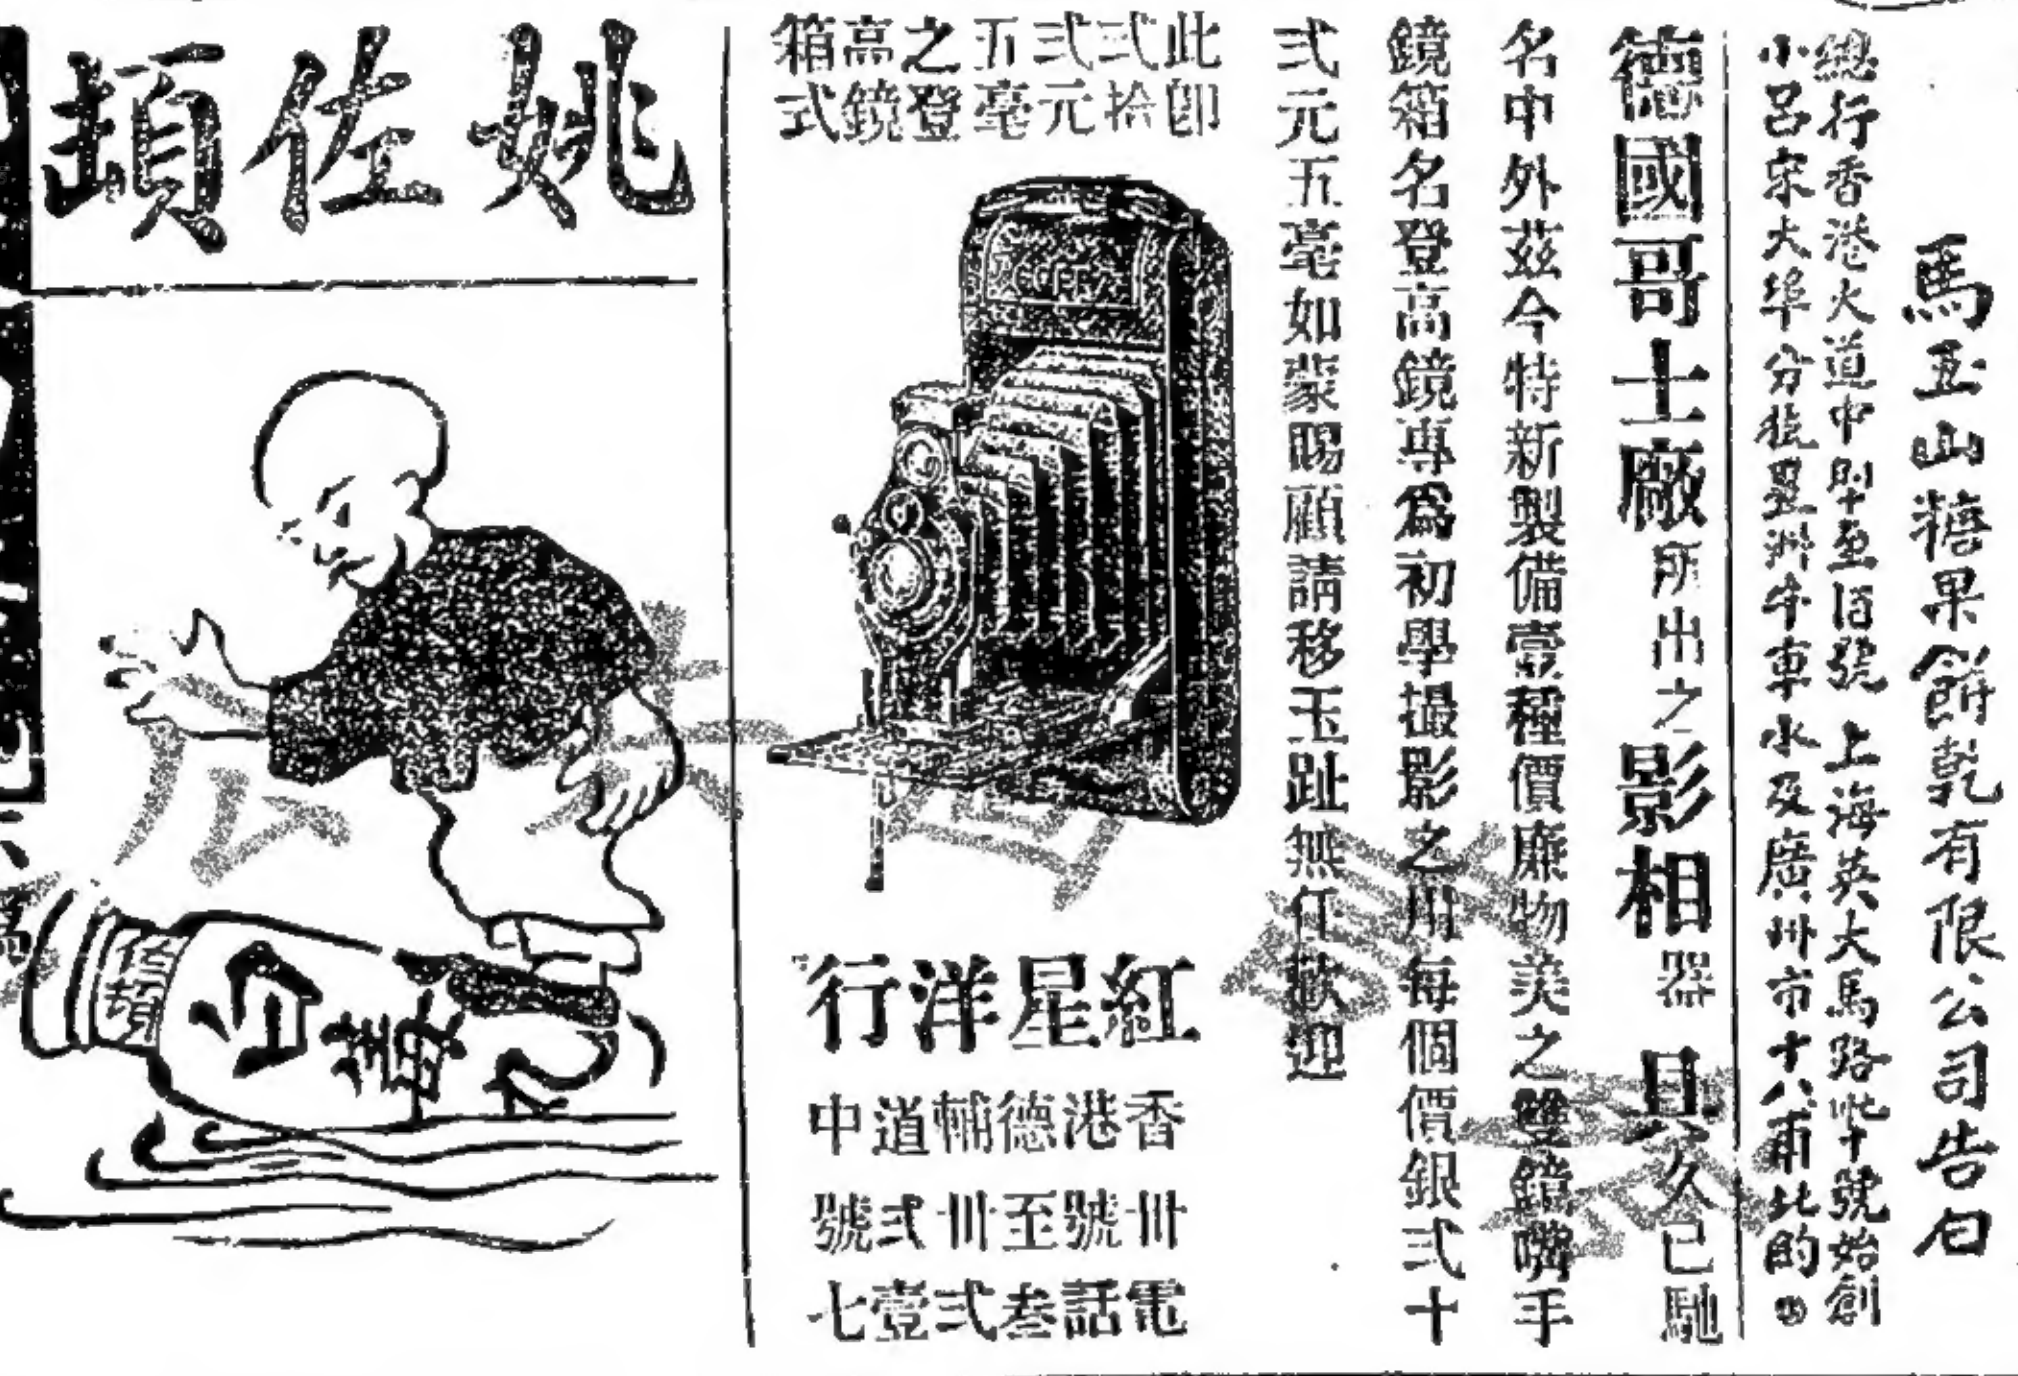 馬玉山糖果餅乾有限公司告白
總行香港大道中四十至百號 上海英大馬路
小呂宋大埠分號星洲牛車水及廣州市十八甫北約
德國哥士廠所出之影相器具久已馳
名中外茲今特新製備壹種價廉物美之雙鏡嘴手
鏡箱名登高鏡專為初學撮影之用每個價銀弍十
弍元五毫如蒙賜顧請移玉趾無任歡迎
此卽
弍拾
弍元
五毫
之登
高鏡
箱式
紅星洋行
香港德輔道中
卅號至卅弍號
電話叁弍壹七
姚佐頓
佐頓